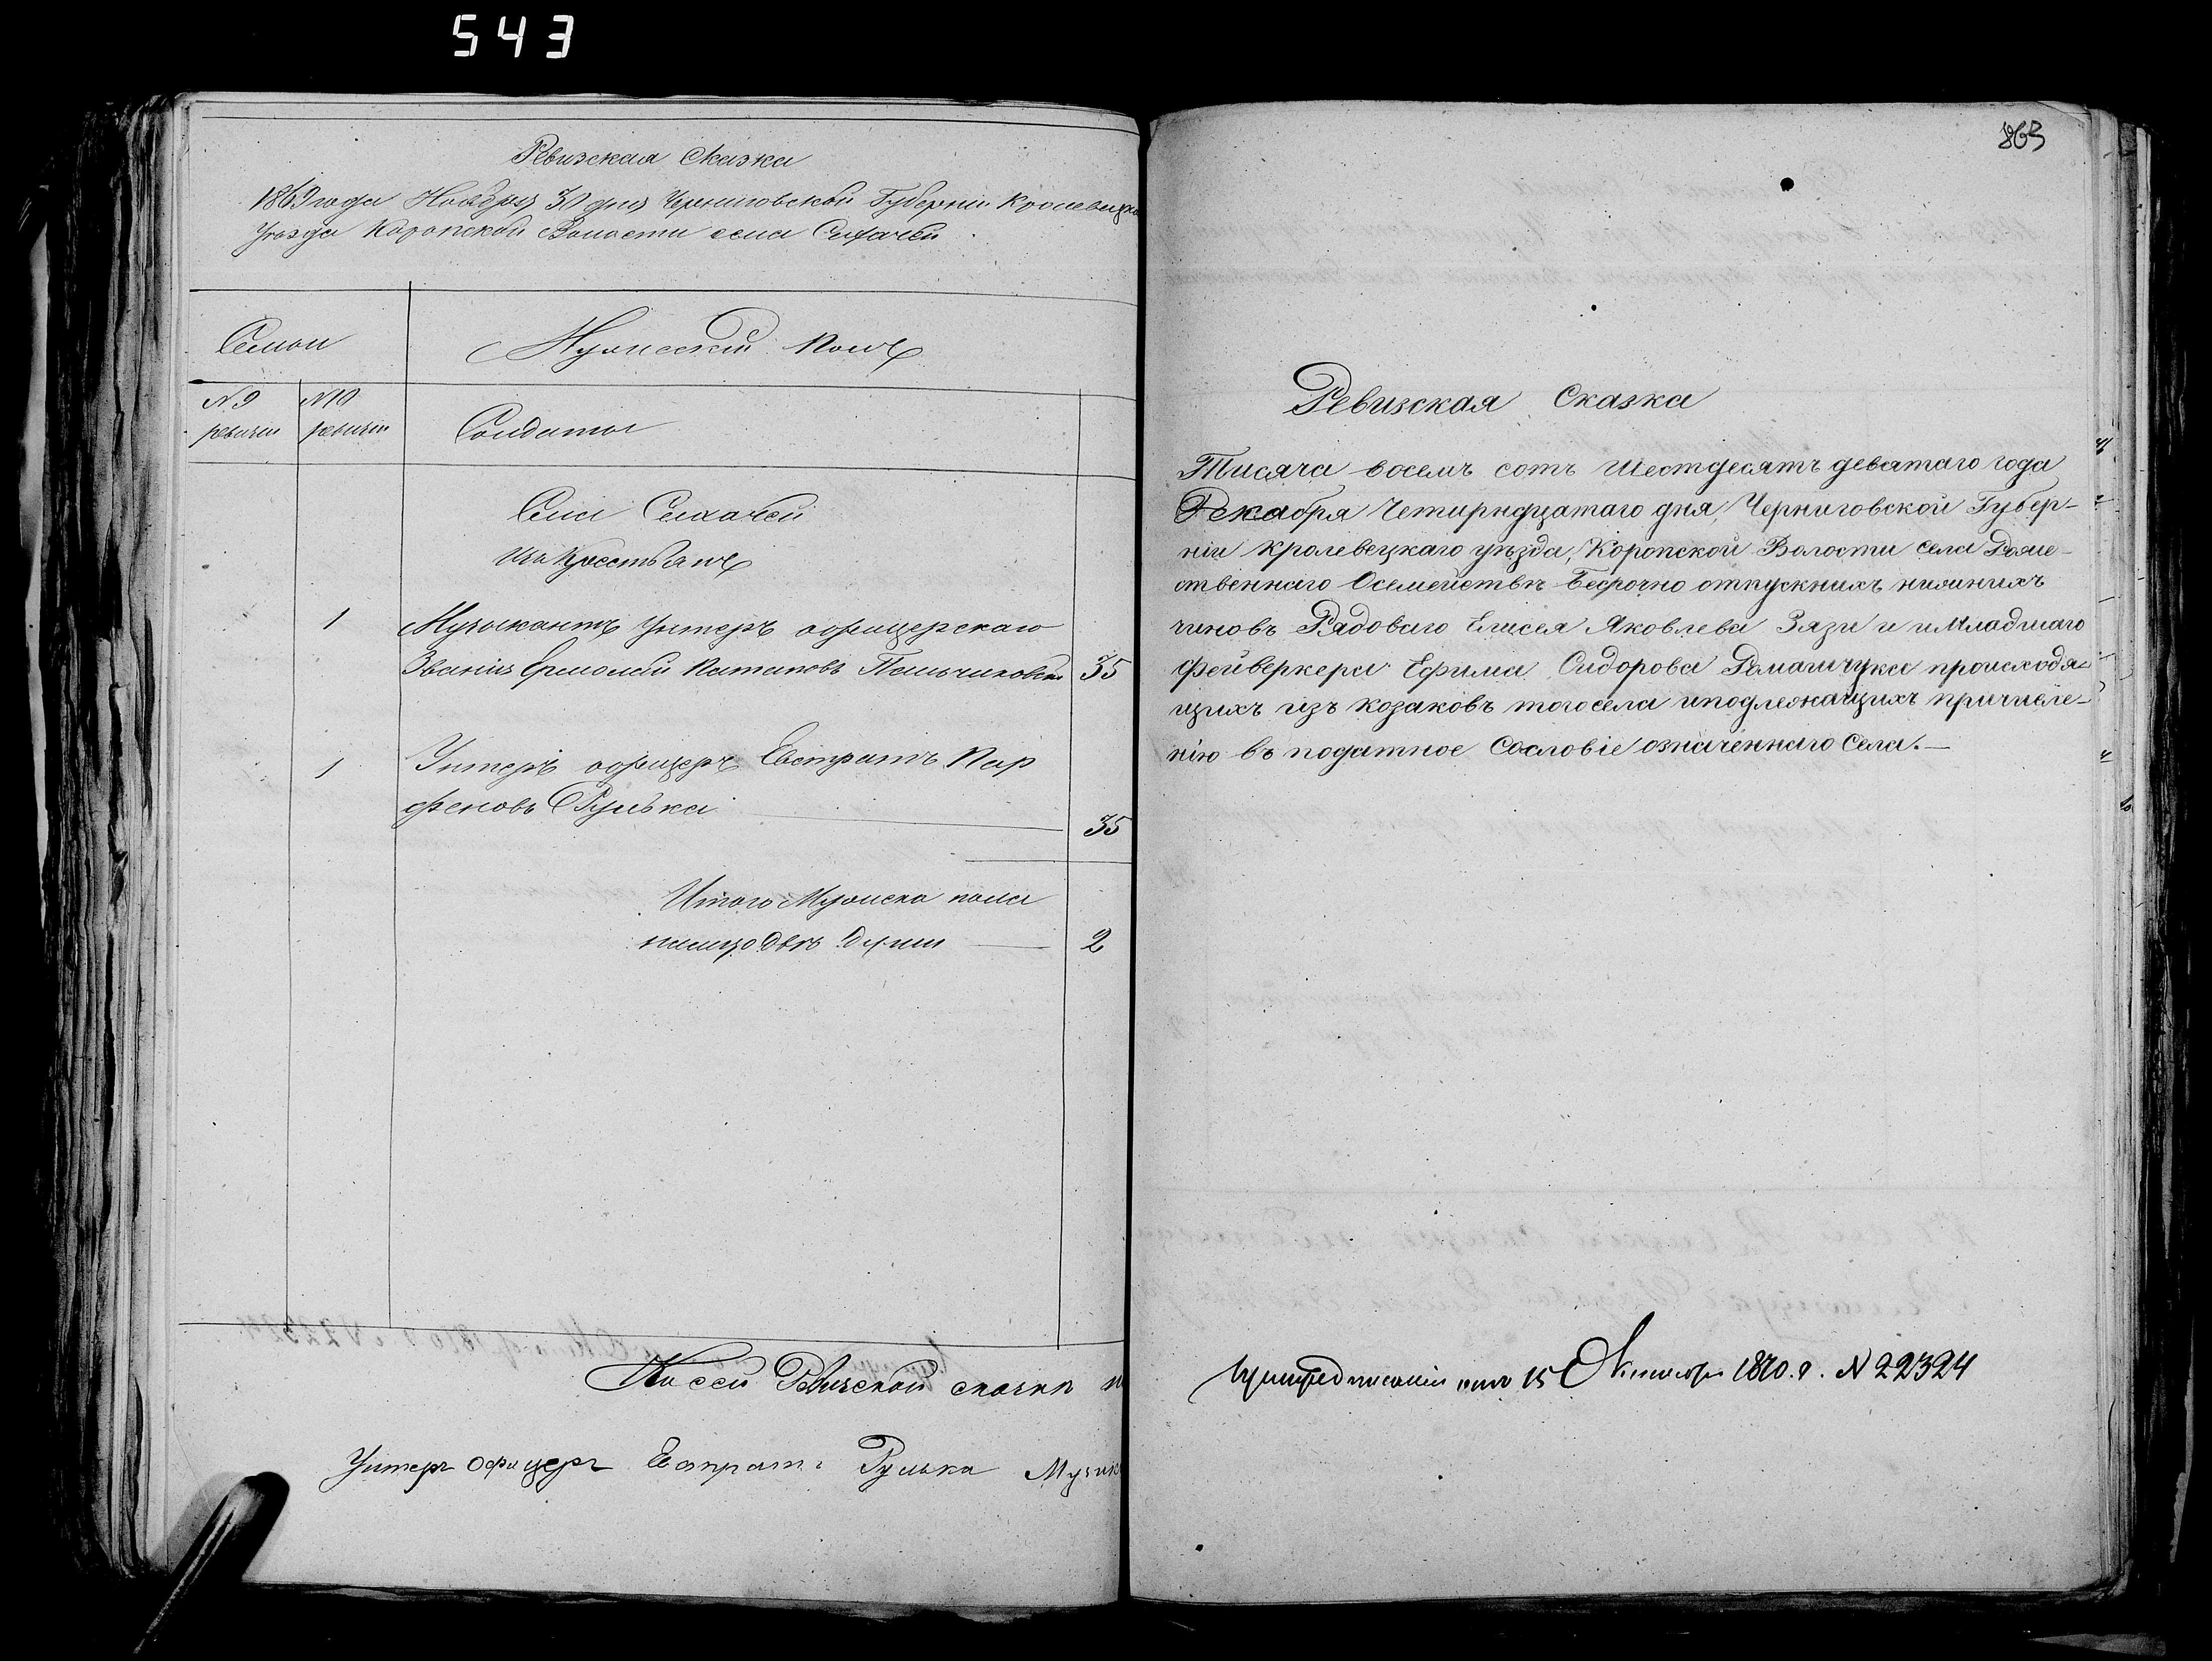 543
Ревизская Сказка
1869 года Ноября 30 дня Черниговской Губернiи Кролевецка
Уѣзда Коропской Волости села Сохачей
Семьи
Мужеский полъ
№ 9 ревизiи
№ 10 ревизiи
Солдаты
Села Сохачей
Изъ Крестьянъ
1
Музыкантъ Унтеръ офицерскаго
Званiя Ермолай Потаповъ
35
1
Унтеръ офицеръ Евстратъ Пар
феновъ Рулька
35
Итого Мужеска пола
налицо двѣ души
2
К сей Ревизской сказкѣ
Унтеръ офицеръ Евтратъ Рулька Музик
863
Ревизская Сказка
Тисяча восемъ сотъ шестдесятъ девятаго года
Декабря Четирндцатаго дня, Черниговской Губер-
нiи Кролевецкаго уѣзда, Коропской Волости села
отвеннаго Осемействѣ Бесрочно отпускнихъ нижнихъ
чиновъ Рядоваго Елисея Яковлева Зязи и и Младшаго
Фейверкера Ефима Сидорова Домашчука происходя
щихъ изъ козаковъ того села иподлежащихъ причисле-
нiю въ податное Сословiе означеннаго Села.—
15 Октября 1870. г. № 22324